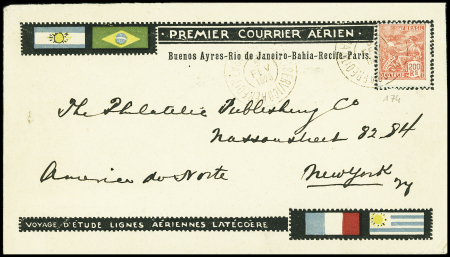 PREMIER COURRIER AÉRIEN
Buenos Ayres-Rio de Janeiro-Bahia-Recife-Paris.
BRASIL
200
174
The Philatelic Publishing Co
Nassau street 82.84
America do Norte New York
Ny
VOYAGE D'ÉTUDE LIGNES AÉRIENNES LATÉCOÈRE